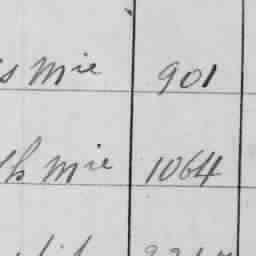 s Mie 901
th Mie 1064